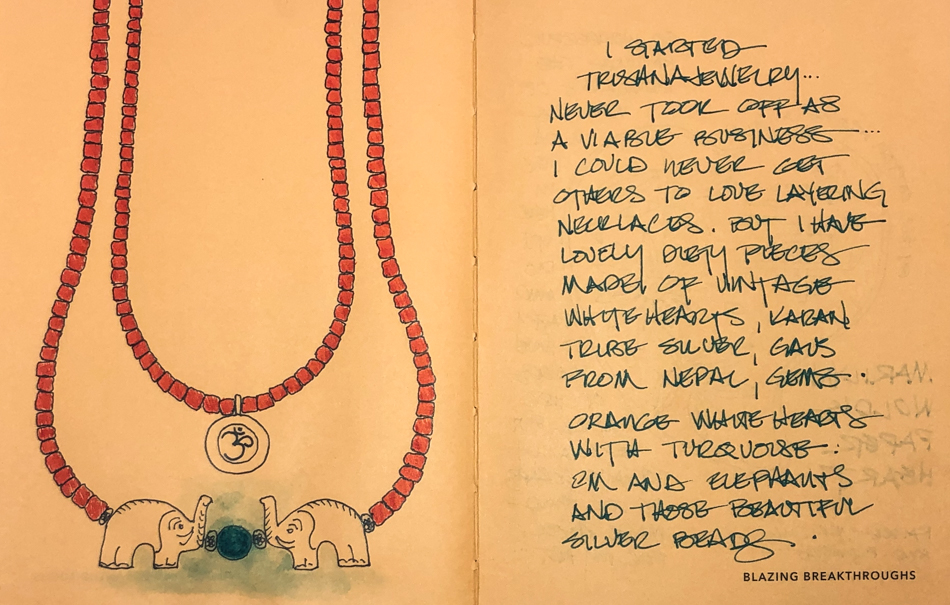 I STARTED
TRUSHNAJEWELRY...
NEVER TOOK OFF AS
A VIABLE BUSINESS...
I COULD NEVER GET
OTHERS TO LOVE LAYERING
NECKLACES. BUT I HAVE
LOVELY PIECES
MADE OF VINTAGE
WHITE HEARTS, KARAN
TRIBE SILVER, GAUS
FROM NEPAL, GEMS.
ORANGE WHITE HEARTS
WITH TURQUOISE.
AND ELEPHANTS
AND THOSE BEAUTIFUL
SILVER BEADS.
BLAZING BREAKTHROUGHS
ॐ